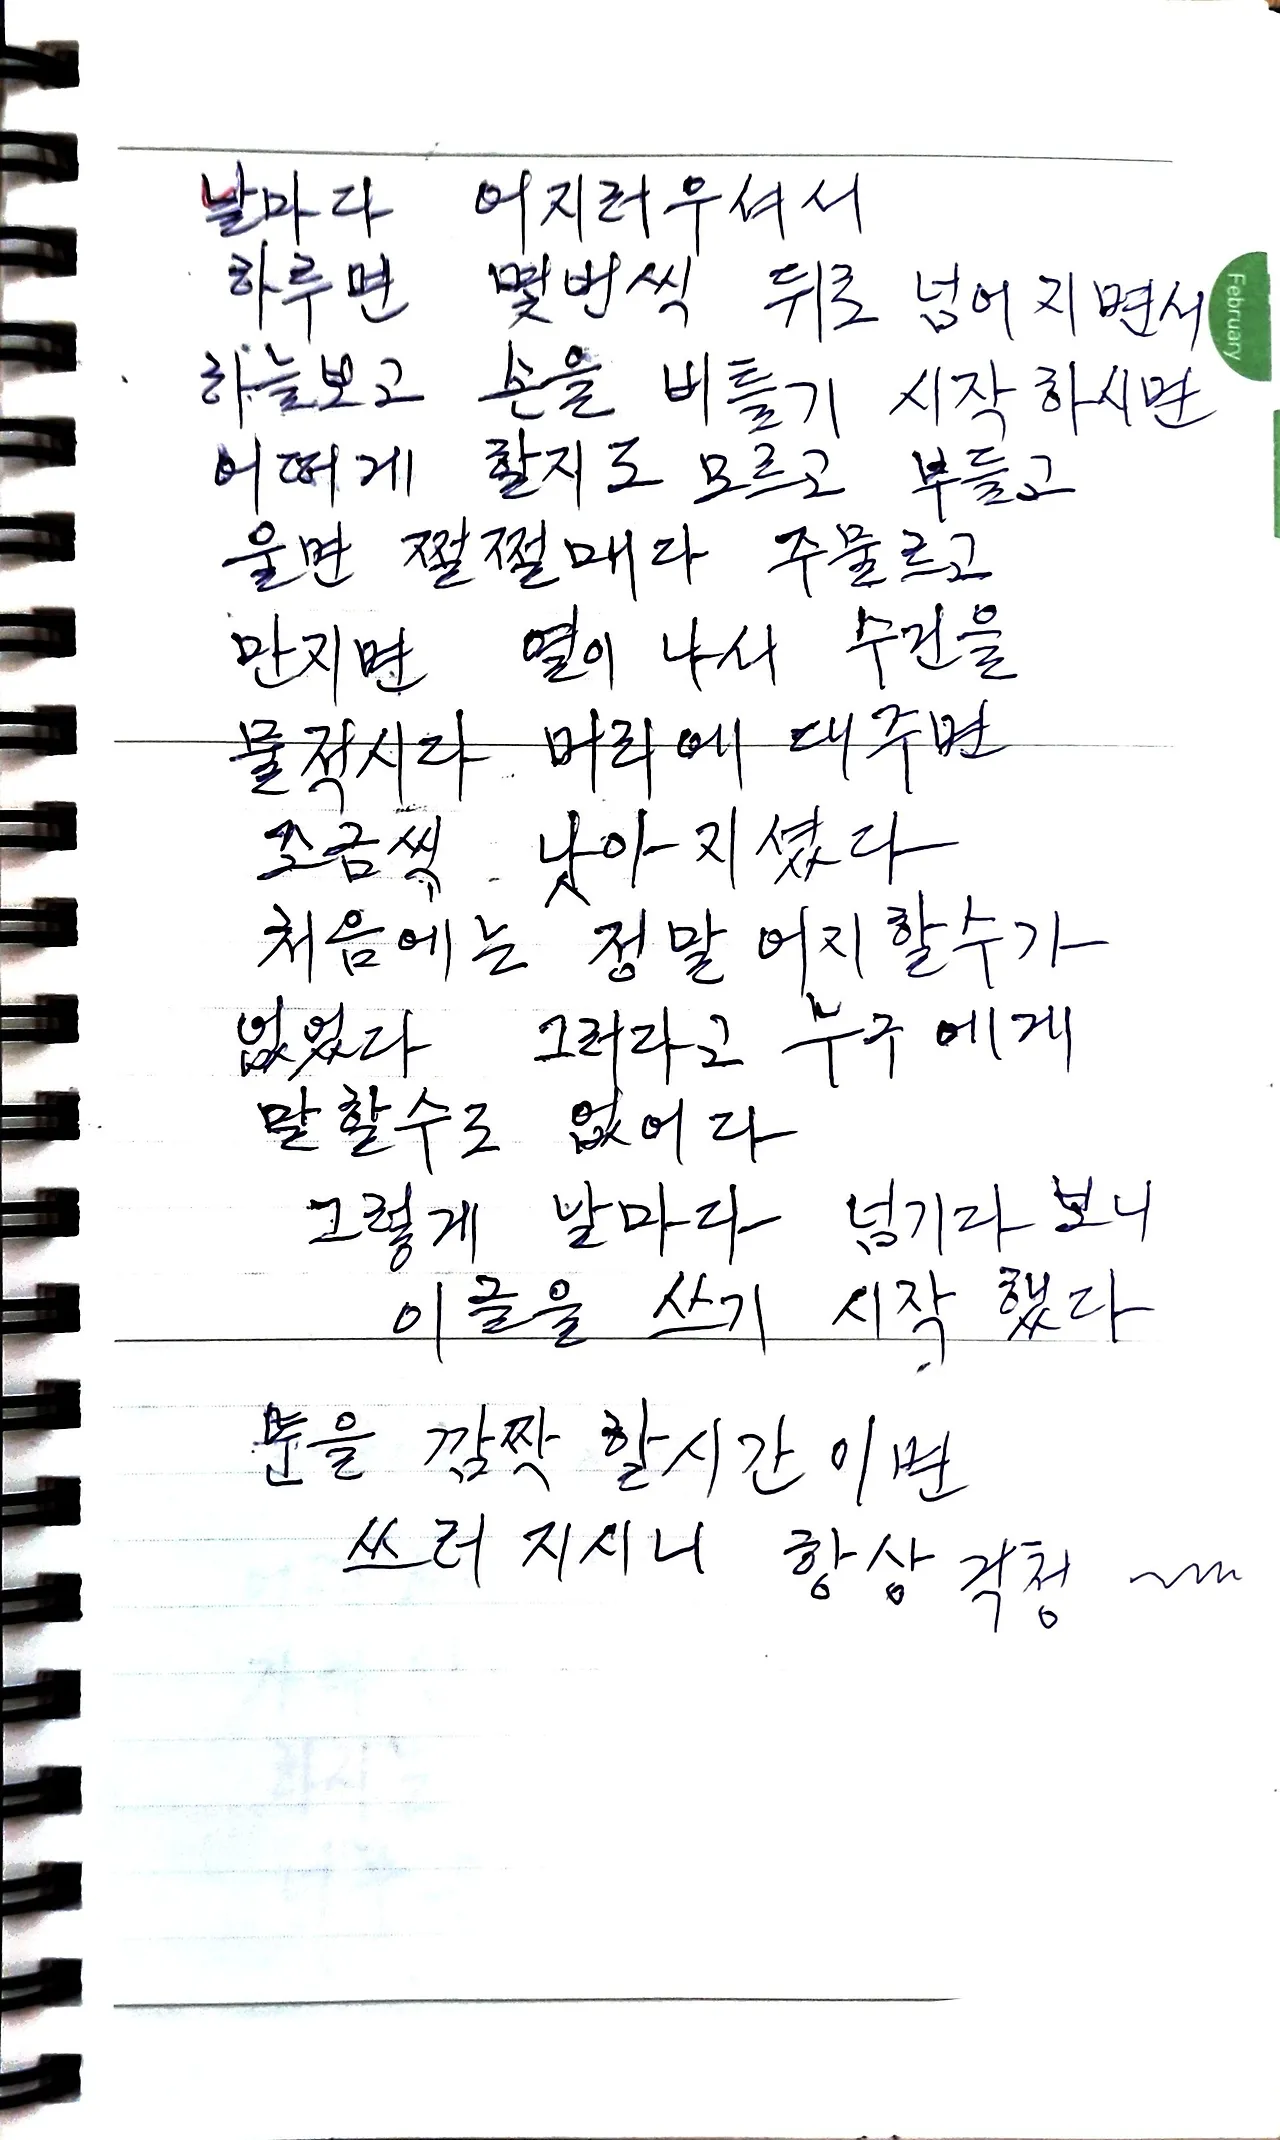 날마다 어지러우셔서
하루면 몇번씩 뒤로 넘어지면서
February
하늘보고 손을 비틀기 시작하시면
어떠게 할지도 모르고 부들고
울면 쩔쩔매다 주물르고
만지면 열이 나서 수건을
물적시다 머리에 대주면
조금씩 낫아지셨다
처음에는 정말 어지할수가
없었다 그러라고 누구에게
말할수도 없어다
그렇게 날마다 넘기다 보니
이글을 쓰기 시작했다
눈을 깜짝 할시간이면
쓰러지시니 항상 걱정